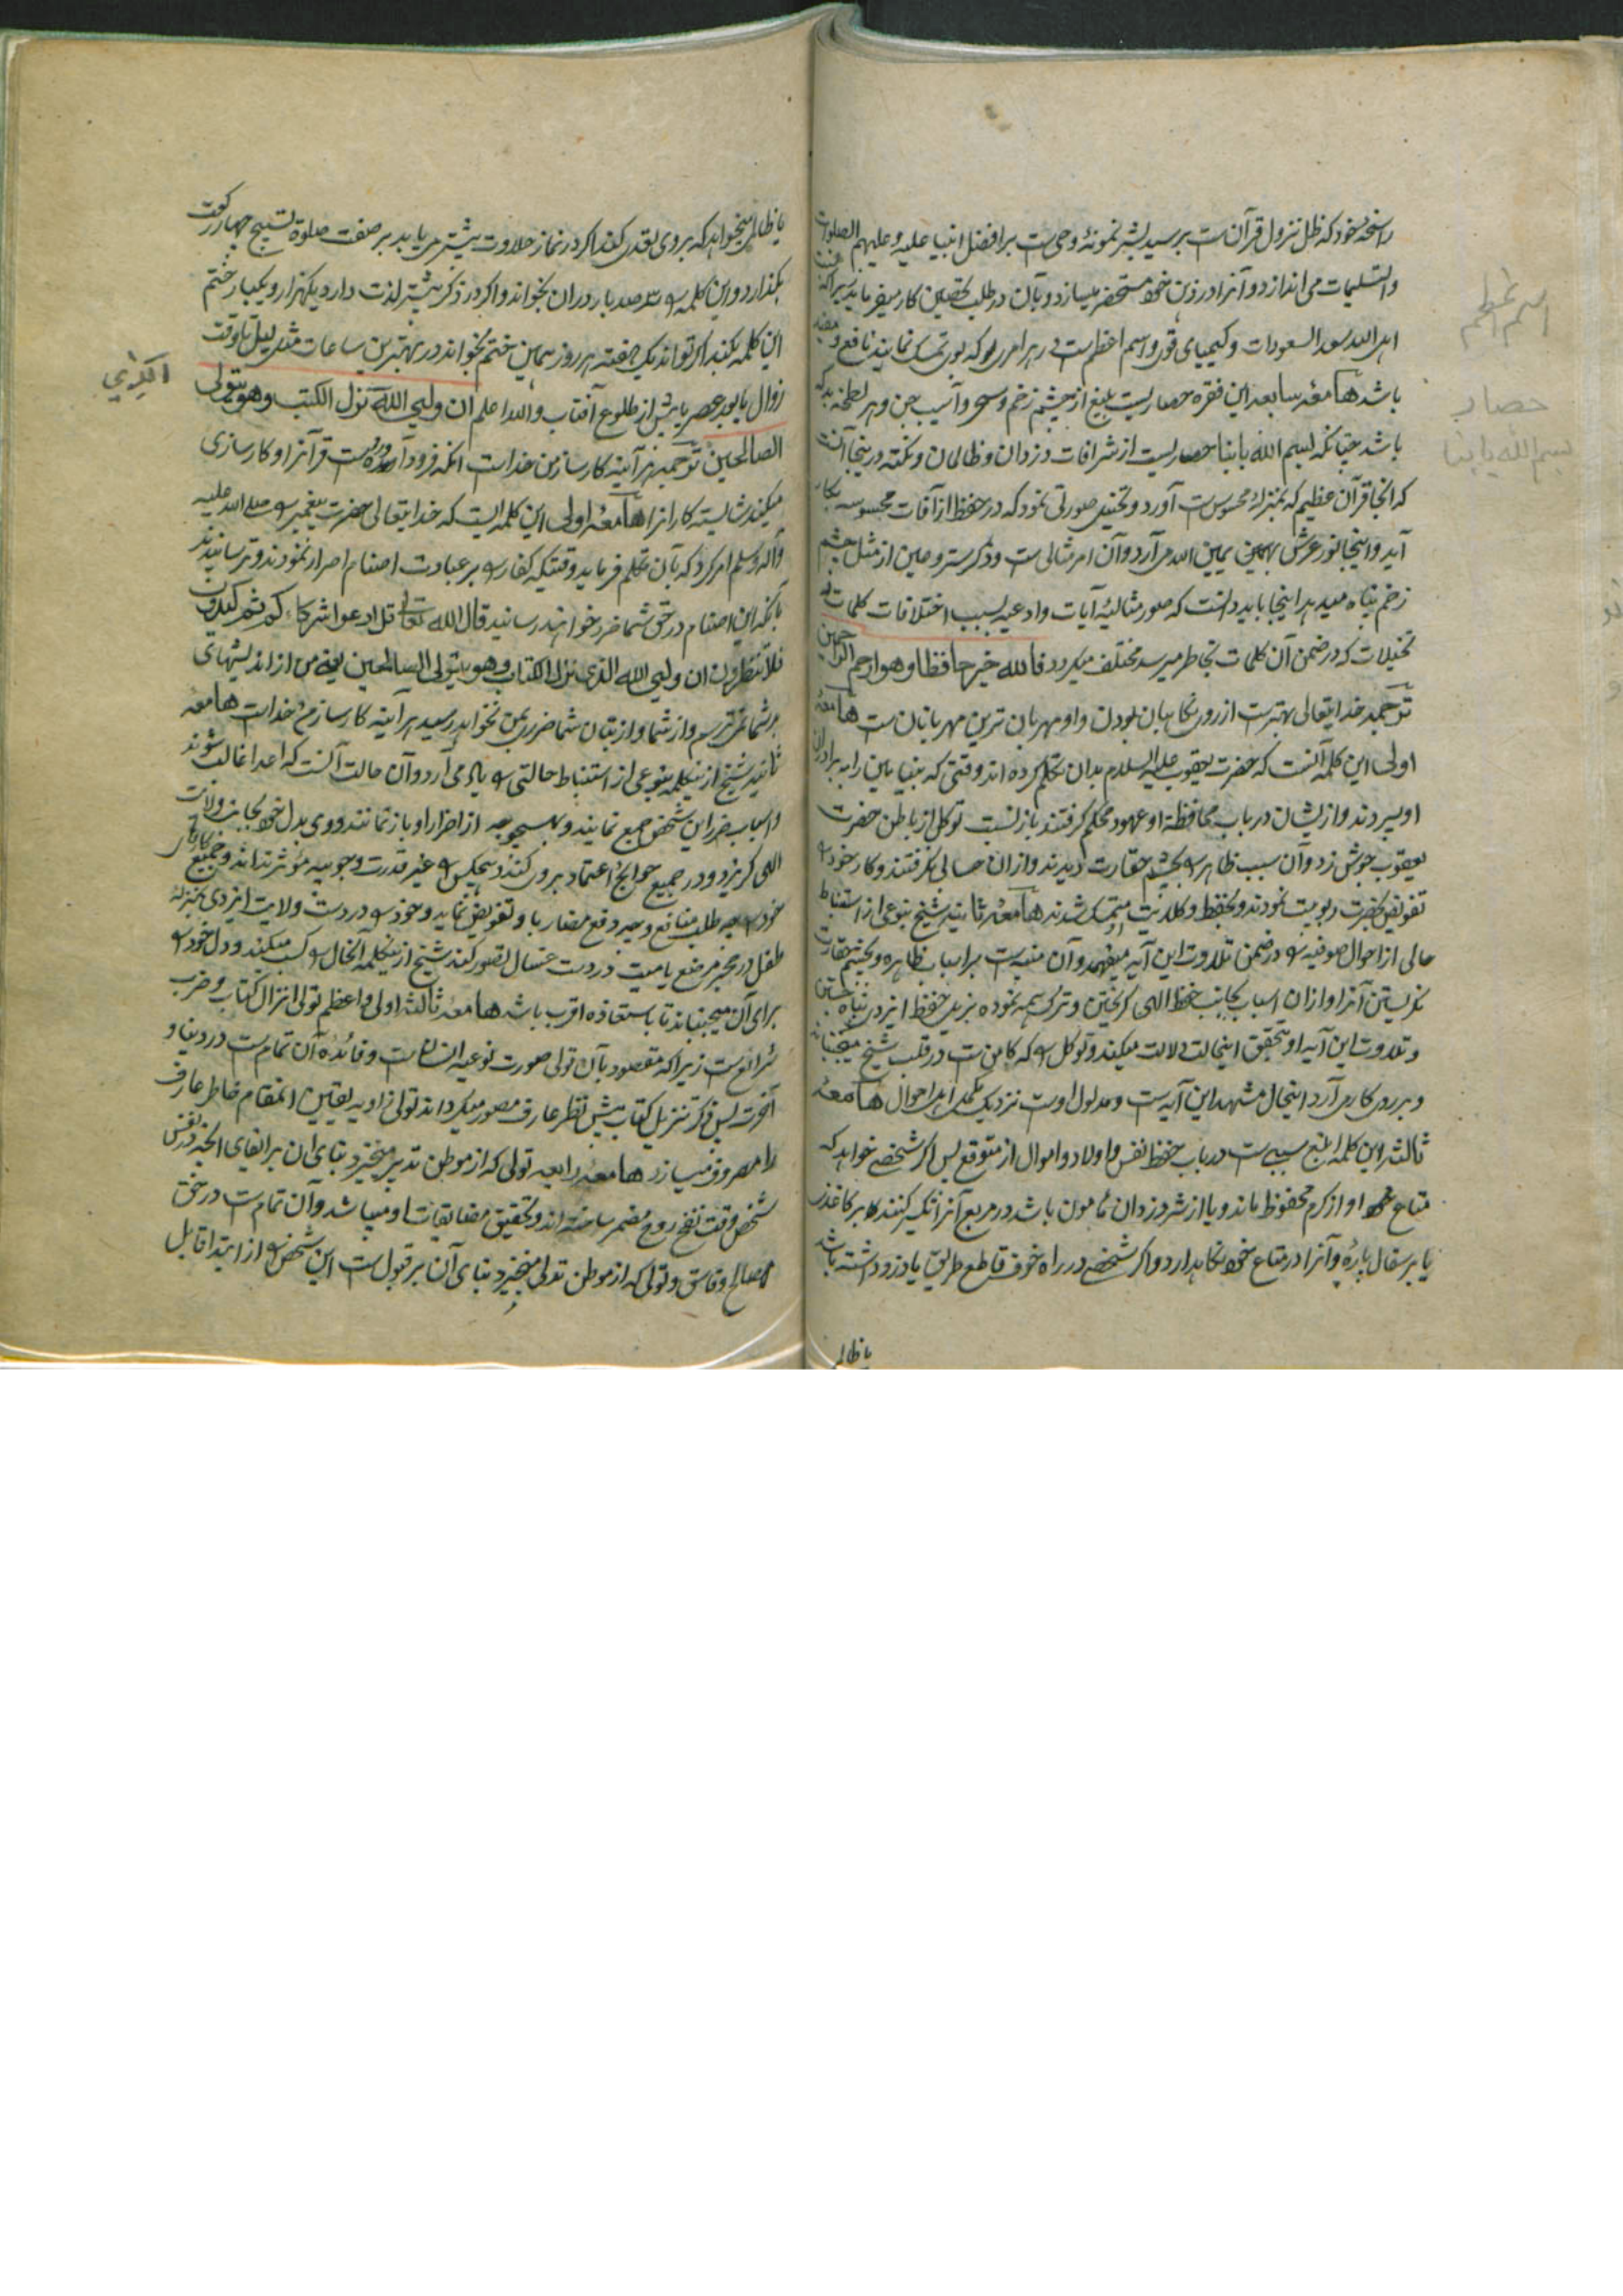 راسخهٔ خود که ظل نزول قرآن ست بر سید بشر نمونهٔ وحی ست بر افضل انبیا علیه وعلیهم الصلوات
والتسلیمات می اندازد و آنرا در ذهن خود مستحضر میسازد و بآن در طلب کار میفرماید زیرا که
اهل الله سعد السعودات و کیمیای قوی و اسم اعظم ست در هر امری که بوی تمسک نمایند نافع
باشد هامعه سابعه این فقره حصاریست بلیغ از چشم زخم و سحر و آسیب جن و هر
باشد چنانکه بسم الله بابنا حصاریست از شر آفات دزدان و ظالمان و نکته درینجا آنست
که آنجا قرآن عظیم که بمنزلهٔ محسوس ست آورد و تخییل صورتی نمود که در حفظ از آفات محسوسه بکار
آید و اینجا نور عرش یمین الله می آرد و آن امر مثالی ست و ذکر ستر و عین از مثل چشم
زخم پناه میدهد اینجا باید دانست که صور مثالیهٔ آیات و ادعیه بسبب اختلافات کلمات
تخیلات که در ضمن آن کلمات بخاطر میرسد مختلف میگردد فالله خیر حافظا وهو ارحم الراحمین
ترجمه خدایتعالی بهتر ست از روی نگاهبان بودن و او مهربان ترین مهربانان ست هامعهٔ
اولی این کلمه آنست که حضرت یعقوب علیه السلام بدان تکلم کرده اند وقتی که بنیامین را به برادران
او سپردند و از ایشان در باب محافظة او عهود محکم گرفتند باز نسبت توکل از باطن حضرت
یعقوب جوش زد و آن سبب ظاهر را بچشم حقارت دیدند و از ان حسابی نگرفتند و کار خود را
تفویض بحضرت ربوبیت نمودند و بحفظ و کلائت متمسک شدند هامعهٔ ثانیه شیخ بنوعی از استنباط
حالی از احوال صوفیه را در ضمن تلاوت این آیه میفهمد و آن منبه ست بر اسباب ظاهره و بچشم حقارت
نگریستن آنرا و از ان اسباب بجانب حفظ الهی گریختن و ترک همه نموده بزیر حفظ ایزدی پناه جستن
و تلاوت این آیه او بتحقق اینحالت دلالت میکند و توکل را که کامن ست در قلب شیخ میجنباند
و بر روی کار می آرد اینحال مشهد این آیه ست و مدلول اوست نزدیک اهل احوال هامعهٔ
ثالثه این کلمه ابلغ سببی ست در باب حفظ نفس و اولاد و اموال از متوقع پس اگر شخصی خواهد که
متاع او از کرم محفوظ ماند و یا از شر دزدان مامون باشد در مربع آنرا تکسیر کنند بر کاغذ
یا بر سفال پاره و آنرا در متاع خود نگاهدارد و اگر شخصی در راه خوف قاطع طریق یا دزد داشته باشد
یا ظالم
اسم اعظم
حصار
بسم الله بابنا
یا ظالمی میخواهد که بر وی تعدی کند اگر در نماز حلاوت بیشتر می یابد بر صفت صلوة تسبیح چهار رکعت
بگذارد و این کلمه را سه صد بار در ان بخواند و اگر در ذکر بیشتر لذت دارد یکهزار و یکبار ختم
این کلمه بکند اگر تواند یک هفته هر روز همین ختم بخواند در بهترین ساعات مثل لیل یا وقت
زوال یا بعد عصر یا پیش از طلوع آفتاب والله اعلم ان ولیی الله نزل الکتب وهو یتولی
الصالحین ترجمه هر آینه کارساز من خداست آنکه فرود آورده است قرآنرا و کارسازی
میکند شایسته کارانرا هامعهٔ اولی این کلمه ایست که خدایتعالی حضرت پیغمبر را صلی الله علیه
وآله وسلم امر کرد که بآن تکلم فرماید وقتیکه کفار بر عبادت اصنام اصرار نمودند و ترسانیدند
بآنکه این اصنام در حق شما ضرر خواهند رسانید قال الله تعالی قل ادعوا شرکاءکم ثم کیدون
فلا تنظرون ان ولیی الله الذی نزل الکتاب وهو یتولی الصالحین یعنی من از اندیشهای
شما نمی ترسم و از شما و از بتان شما ضرری بمن نخواهد رسید هر آینه کارساز من خداست هامعه
ثانیه شیخ ازینکلمه بنوعی از استنباط حالتی را یاد می آرد و آن حالت آنست که اعدا غالب شوند
و اسباب ضرر این شخص جمع نمایند و بهیچوجه از اضرار او باز نمانند و وی بدل خود بجانب ولایت
الهی گریزد و در جمیع حوایج اعتماد بر وی کند و هیچکس را غیر قدرت وجوبیه موثر نداند و جمیع کارهای
خود را چه طلب منافع و چه دفع مضار باو تفویض نماید و خود را در دست ولایت ایزدی بمنزلهٔ
طفل در حجر مرضع یا میت در دست غسال تصور کند شیخ ازینکلمه آنحال را کسب میکند و دل خود را
برای آن میجنباند تا باستعاذه اقرب باشد هامعهٔ ثالثه اولی و اعظم تولی انزال کتاب و ضرب
شرائع ست زیرا که مقصود بآن تولی صورت نوعیه انسان ست و فائدهٔ آن تمام ست در دنیا و
آخرت پس ذکر تنزیل کتاب پیش نظر عارف مصور میگرداند تولی را و به تعیین آنمقام خاطر عارف
را مصروف میسازد هامعه رابعه تولی که از موطن تدبیر میخیزد بنای آن بر ابقای آنچه در نفس
شخص وقت نفخ روح مضمر ساخته اند و تحقیق مضایقات او میباشد و آن تمام ست در حق
صالح و فاسق و تولی که از موطن تدلی میخیزد بنای آن بر قبول ست این شخص را از ابتدا قابل